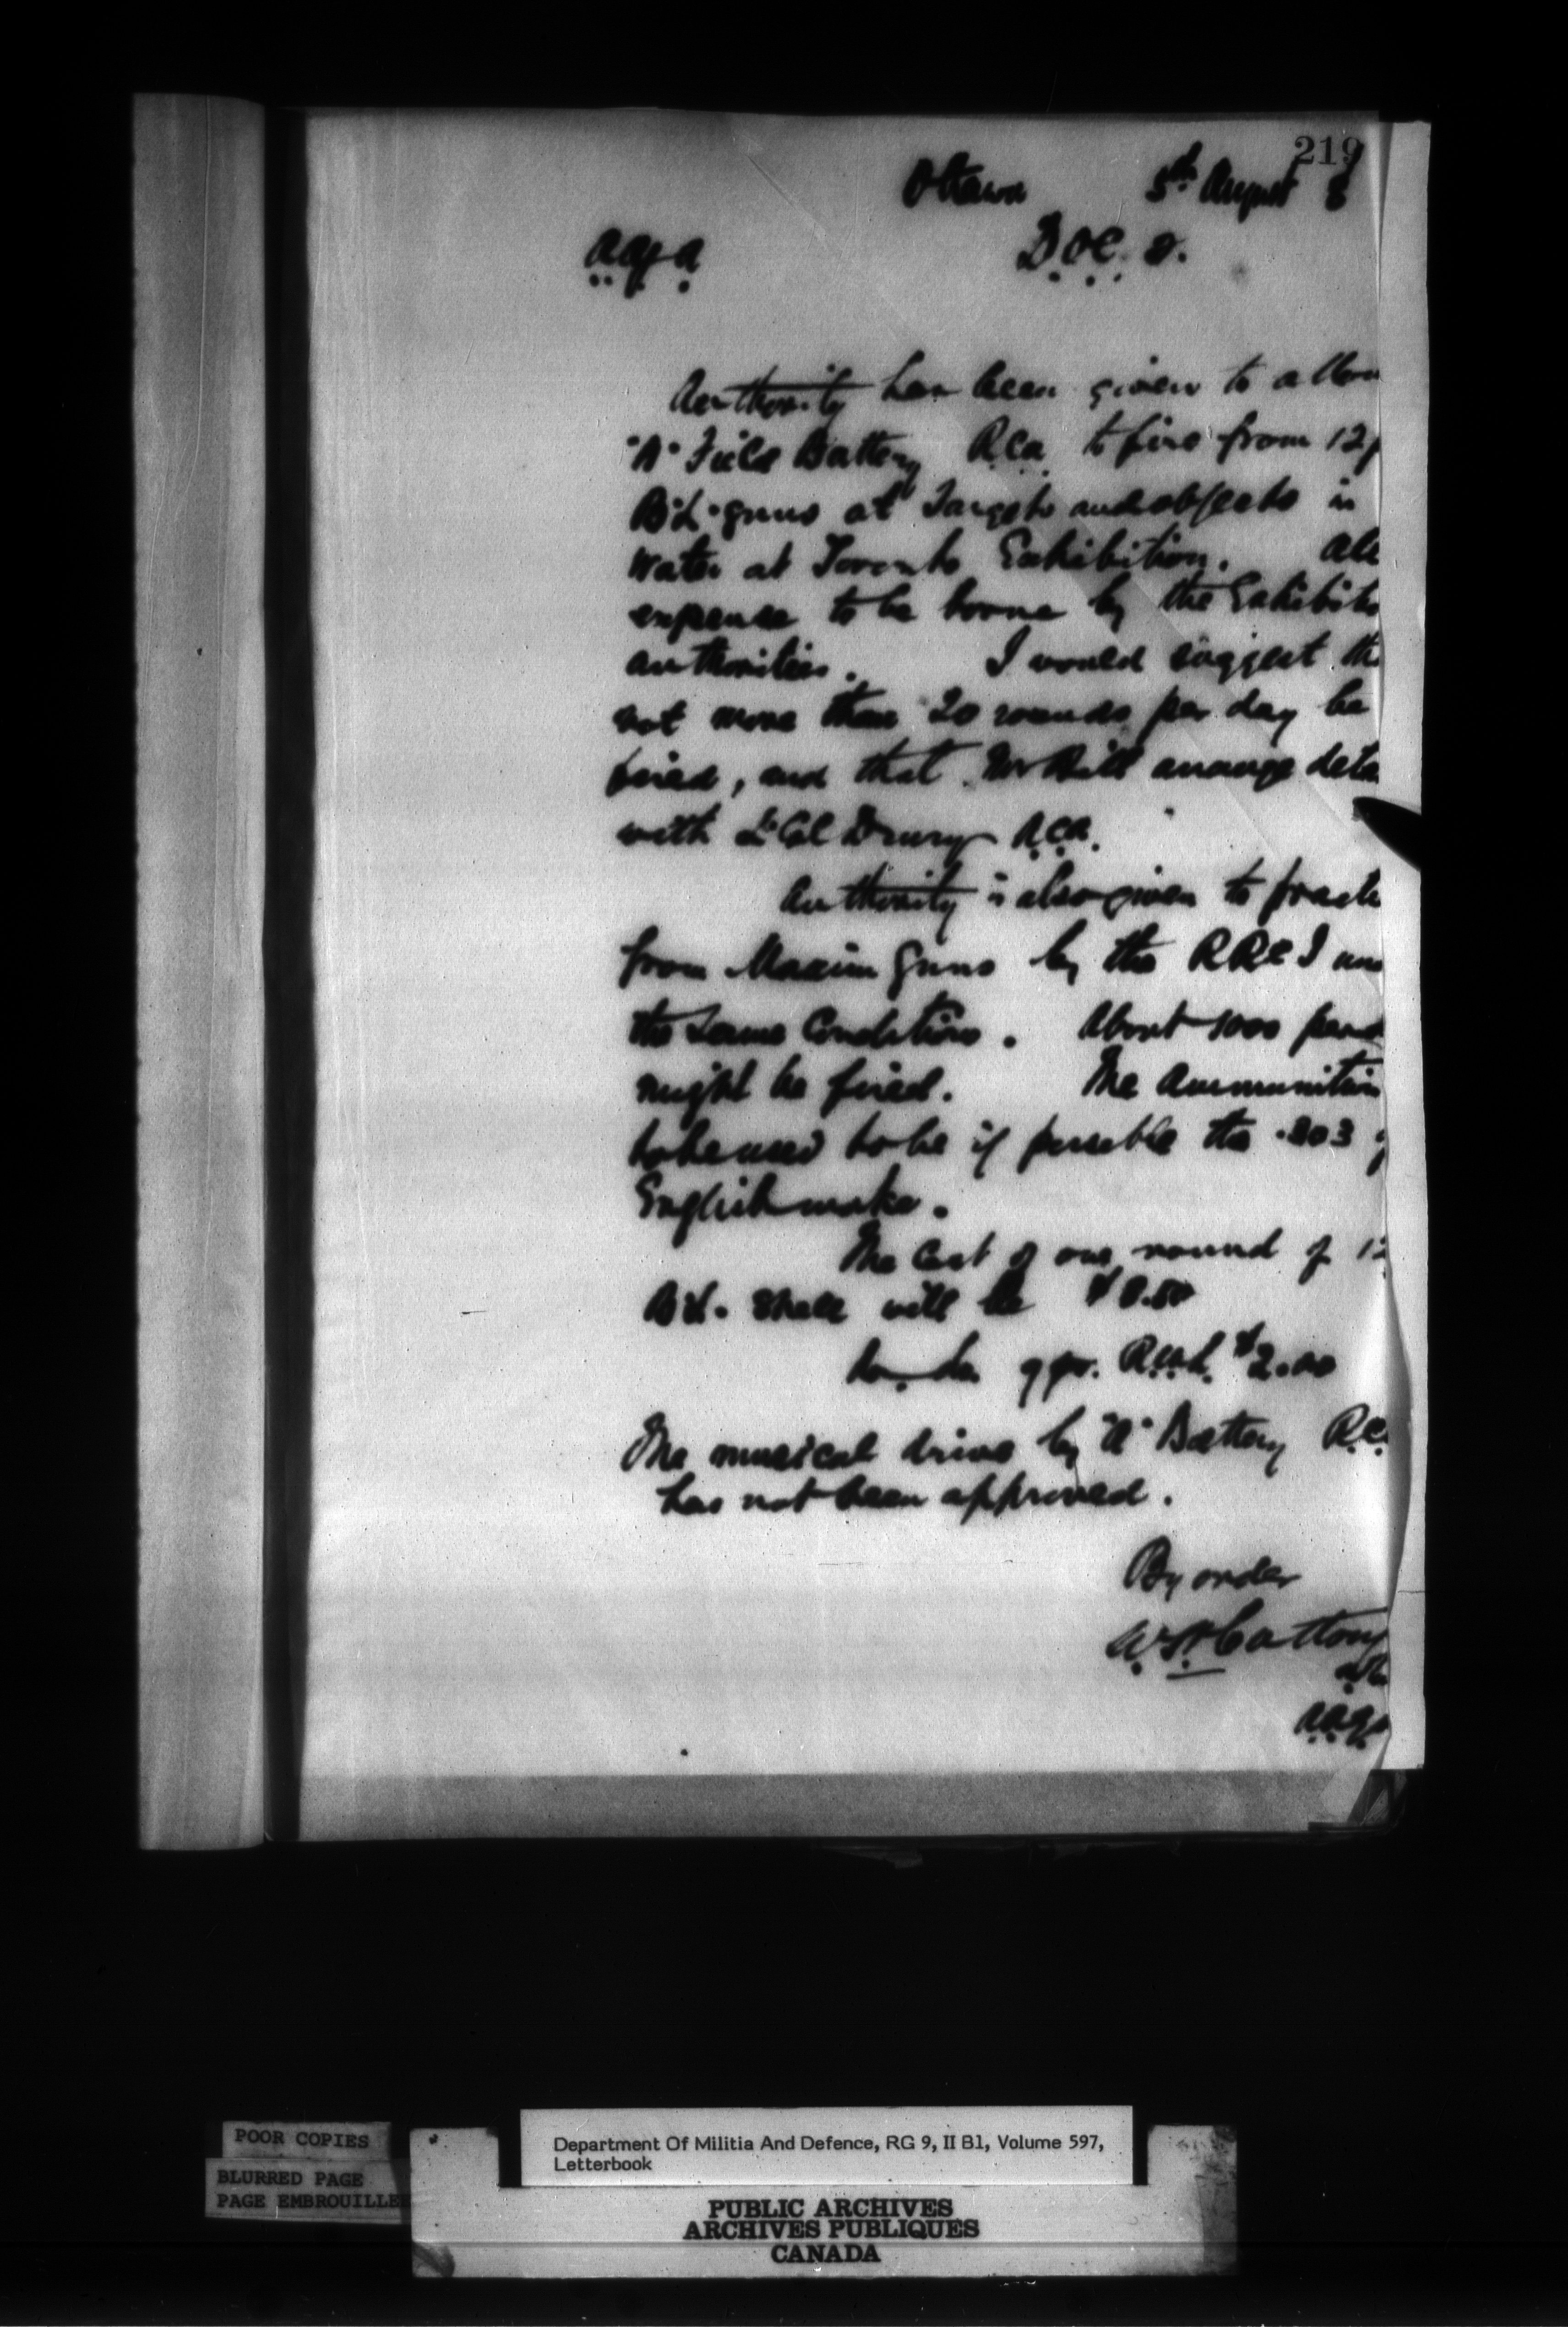 219
Ottawa 5th August 8
D.O.C. 2.
Authority has been given to allow
"A" Field Battery RCA to fire from 12p
B.L. guns at Targets and objects in
Water at Toronto Exhibition. All
expense to be borne by the Exhibiti
authorities. I would suggest th
not more than 20 rounds per day be
fired, and that Mr Hill arrange deta
with Lt Col Drury R.C.A.
Authority is also given to practi
from Maxim Guns by the RRCI un
the Same Conditions. About 1000 per d
might be fired. The Ammunition
to be used to be if possible the .303
English make.
The Cost of one round of 12
B.L. Shell will be $8.50
do. do. 9 pr. R.M.L. $2.00
The musical drive by "A" Battery R.C.
has not been approved.
By order
A.A.G.
POOR COPIES
BLURRED PAGE
PAGE EMBROUILLEE
Department Of Militia And Defence, RG 9, II B1, Volume 597,
Letterbook
PUBLIC ARCHIVES
ARCHIVES PUBLIQUES
CANADA